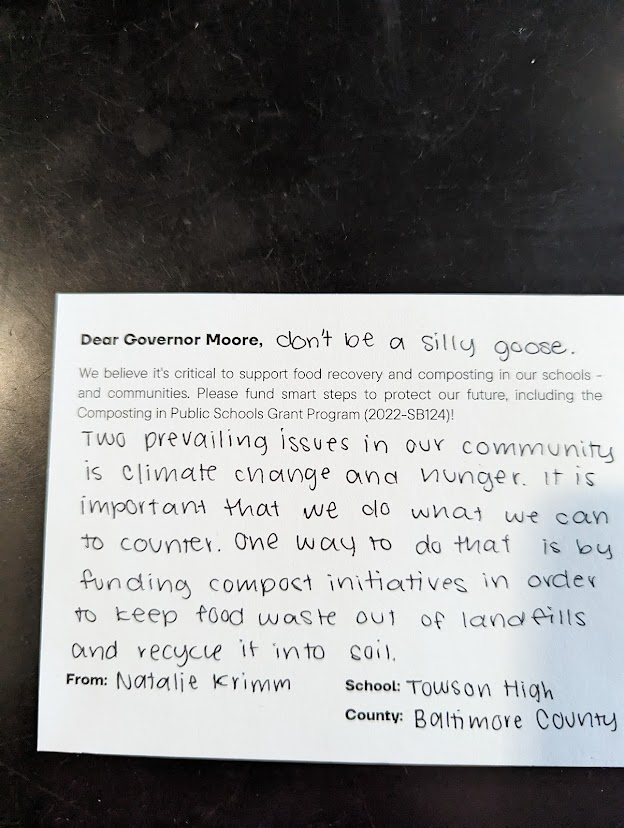 Dear Governor Moore, don't be a silly goose.
We believe it's critical to support food recovery and composting in our schools –
and communities. Please fund smart steps to protect our future, including the
Composting in Public Schools Grant Program (2022-SB124)!
Two prevailing issues in our community
is climate change and hunger. It is
important that we do what we can
to counter. One way to do that is by
funding compost initiatives in order
to keep food waste out of landfills
and recycle it into soil.
From: Natalie Krimm
School: Towson High
County: Baltimore County